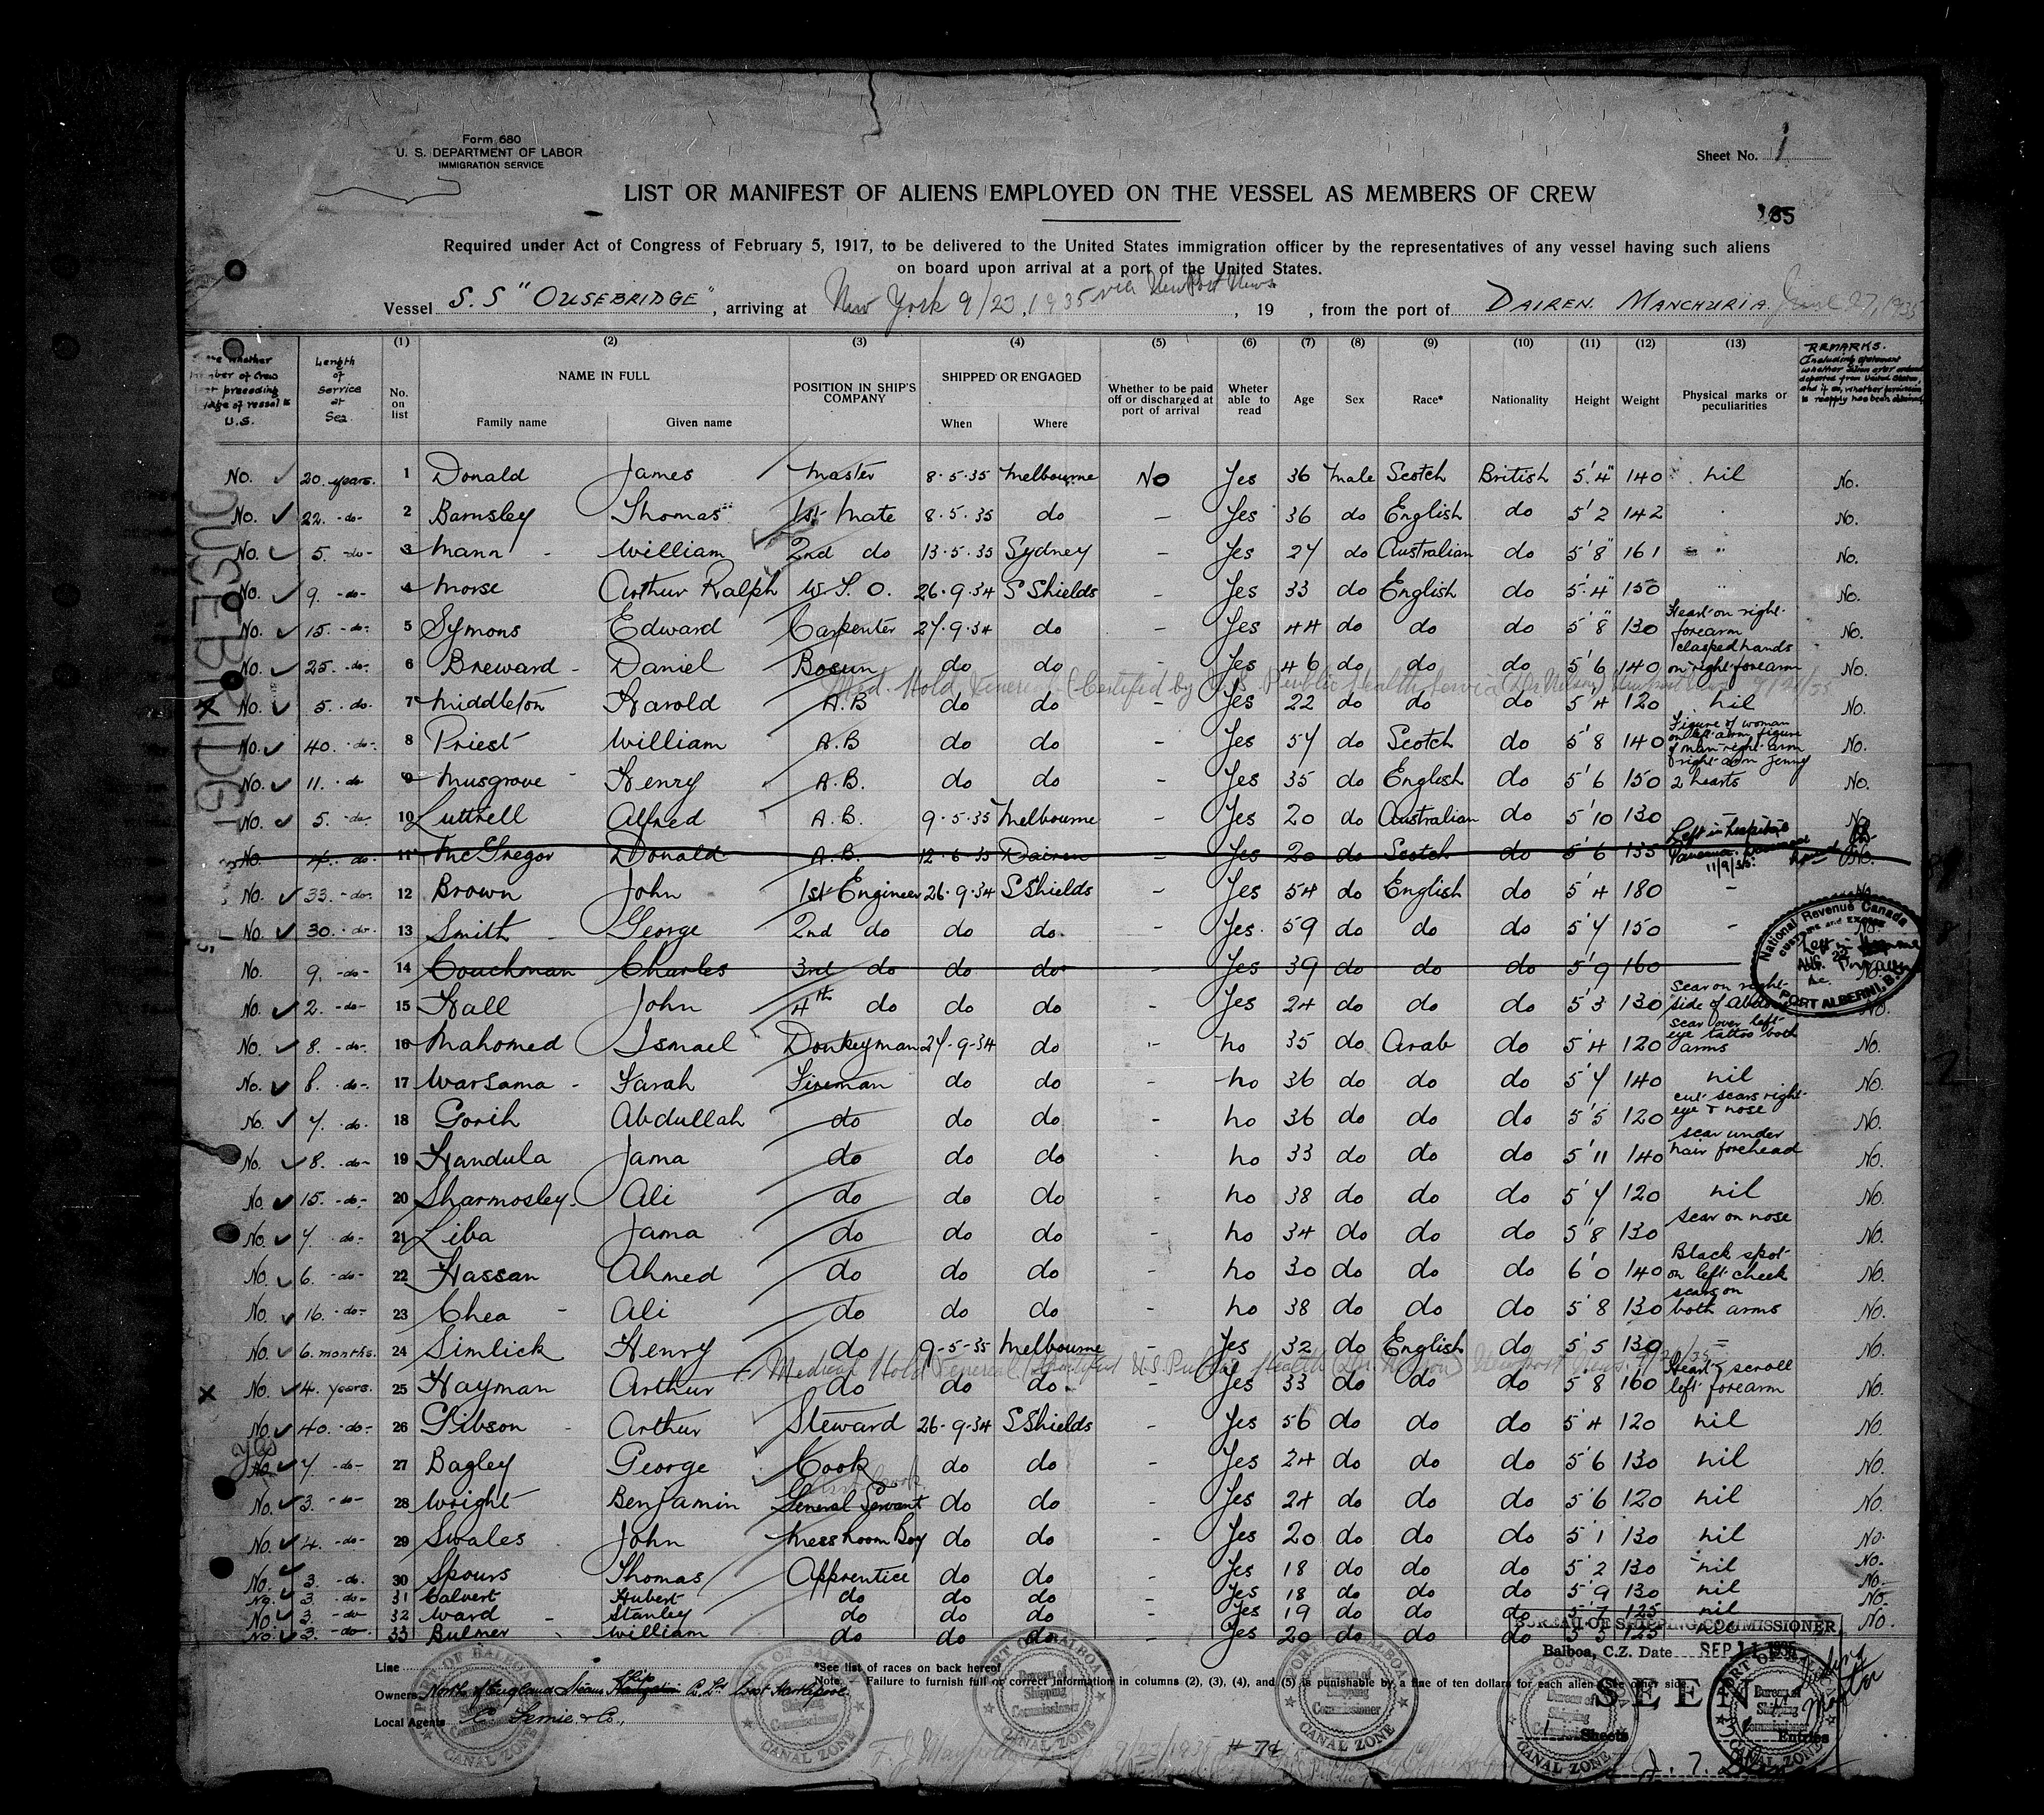 Form 680
U. S. DEPARTMENT OF LABOR
IMMIGRATION SERVICE
Sheet No. 1
LIST OR MANIFEST OF ALIENS EMPLOYED ON THE VESSEL AS MEMBERS OF CREW
Required under Act of Congress of February 5, 1917, to be delivered to the United States immigration officer by the representatives of any vessel having such aliens
on board upon arrival at a port of the United States.
Vessel S.S "OUSEBRIDGE", arriving at New York 9/23, 1935 via Newport News, 19 , from the port of DAIREN. MANCHURIA. June 27, 1935
Length of Service at Sea
(1) No. on list
(2) NAME IN FULL Family name Given name
(3) POSITION IN SHIP'S COMPANY
(4) SHIPPED OR ENGAGED When Where
(5) Whether to be paid off or discharged at port of arrival
(6) Wheter able to read
(7) Age
(8) Sex
(9) Race*
(10) Nationality
(11) Height
(12) Weight
(13) Physical marks or peculiarities
REMARKS.
No. 20 years. 1 Donald James Master 8.5.35 Melbourne No Yes 36 Male Scotch British 5'.4" 140 nil No.
No. 22 -do- 2 Barnsley Thomas 1st Mate 8.5.35 do - Yes 36 do English do 5'2 142 " No.
No. 5 -do- 3 Mann William 2nd do 13.5.35 Sydney - Yes 27 do Australian do 5'8" 161 " No.
No. 9 -do- 4 Morse Arthur Ralph W.T.O. 26.9.34 S Shields - Yes 33 do English do 5'.4" 150 " No.
No. 15 -do- 5 Symons Edward Carpenter 27.9.34 do - Yes 44 do do do 5'8" 130 Heart on right forearm No.
No. 25 -do- 6 Breward Daniel Bosun do do - Yes 46 do do do 5'6 140 clasped hands on right forearm No.
No. 5 do. 7 Middleton Harold A.B do do - Yes 22 do do do 5'4 120 nil No.
No. 40 do. 8 Priest William A.B do do - Yes 57 do Scotch do 5'8 140 Figure of woman on left arm figure of man right arm No.
No. 11 do 9 Musgrove Henry A.B. do do - Yes 35 do English do 5'6 150 right arm Jenny 2 hearts No.
No. 5 -do- 10 Luttrell Alfred A.B. 9.5.35 Melbourne - Yes 20 do Australian do 5'10 130 - No.
No. 4 do. 11 McGregor Donald A.B. 12.6.35 Dairen - Yes 20 do Scotch do 5'6 135 Left in hospital 11/9/35. No.
No. 33 -do- 12 Brown John 1st Engineer 26.9.34 S Shields - Yes 54 do English do 5'4 180 - No.
No. 30 -do- 13 Smith George 2nd do do do - Yes. 59 do do do 5'7 150 - No.
No. 9 -do- 14 Couchman Charles 3rd do do do - Yes 39 do do do 5'9 160 No.
No. 2 -do- 15 Hall John 4th do do do - Yes 24 do do do 5'3 130 Scar on right side of No.
No. 8 -do- 16 Mahomed Ismael Donkeyman 27-9-34 do - No 35 do Arab do 5'4 120 scar over left eye tattoo both arms No.
No. 8 do- 17 Warsama Farah Fireman do do - No 36 do do do 5'7 140 nil No.
No. 7 do- 18 Gorih Abdullah do do do - No 36 do do do 5'5 120 cut scars right eye & nose No.
No. 8 do- 19 Handula Jama do do do - No 33 do do do 5'11 140 scar under hair forehead No.
No. 15 -do- 20 Sharmosley Ali do do do - No 38 do do do 5'7 120 nil No.
No. 7 do- 21 Liba Jama do do do - No 34 do do do 5'8 130 Scar on nose No.
No. 6 -do- 22 Hassan Ahmed do do do - No 30 do do do 6'0 140 Black spot on left cheek No.
No. 16 -do- 23 Chea Ali do do do - No 38 do do do 5'8 130 scars on both arms No.
No. 6 months. 24 Simlick Henry do 9-5-35 Melbourne - Yes 32 do English do 5'5 130 - No.
X No. 4 years. 25 Hayman Arthur do do do. Yes 33 do do do 5'8 160 Heart & scroll left forearm No.
No. 40 -do- 26 Gibson Arthur Steward 26-9-34 S Shields - Yes 56 do do do 5'4 120 nil No.
yes No. 7 -do- 27 Bagley George Cook do do - Yes 24 do do do 5'6 130 nil No.
No. 3 -do- 28 Wright Benjamin General Servant do do - Yes 24 do do do 5'6 120 nil No.
No. 4 -do- 29 Swales John Mess Room Boy do do - Yes 20 do do do 5'1 130 nil No.
No. 3 do. 30 Spours Thomas Apprentice do do - Yes 18 do do do 5'2 130 nil No.
No. 3 do- 31 Calvert Hubert do do do - Yes 18 do do do 5'9 130 nil No.
No. 3 -do- 32 Ward Stanley do do do - Yes 19 do do do 5'7 125 nil No.
No. 3 -do- 33 Bulmer William do do do - Yes 20 do do do 5'5 125 nil No.
OUSEBRIDGE
National Revenue Canada
PORT ALBERNI, B.C.
Line
*See list of races on back hereof
Owners North of England Steam Ship Co. Ld. West Hartlepool
Note.—Failure to furnish full or correct information in columns (2), (3), (4), and (5) is punishable by a fine of ten dollars for each alien. See other side.
Local Agents
PORT OF BALBOA
Bureau of Shipping Commissioner
CANAL ZONE
BUREAU OF SHIPPING COMMISSIONER
Balboa, C.Z. Date SEP 11 1935
SEEN
1 Sheets
Entries
Master